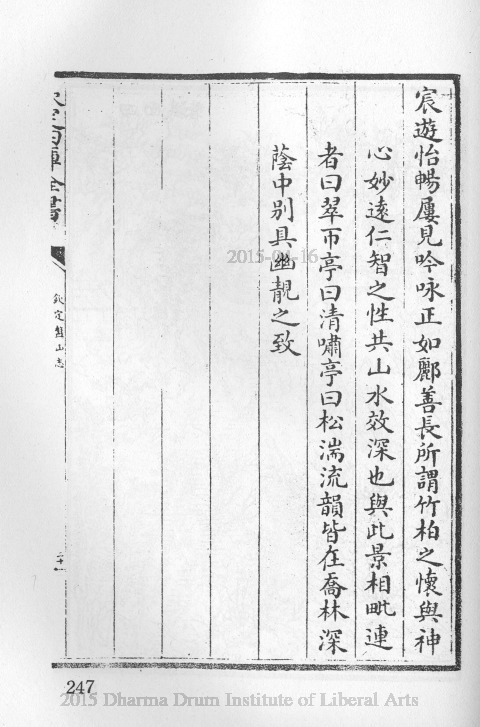 宸遊怡暢屢見吟咏正如酈善長所謂竹柏之懷與神
心妙遠仁智之性共山水效深也與此景相毗連
者曰翠帀亭曰清嘯亭曰松湍流韻皆在喬林深
蔭中别具幽靚之致
欽定四庫全書
欽定盤山志
二十一
2015-04-16
247
2015 Dharma Drum Institute of Liberal Arts